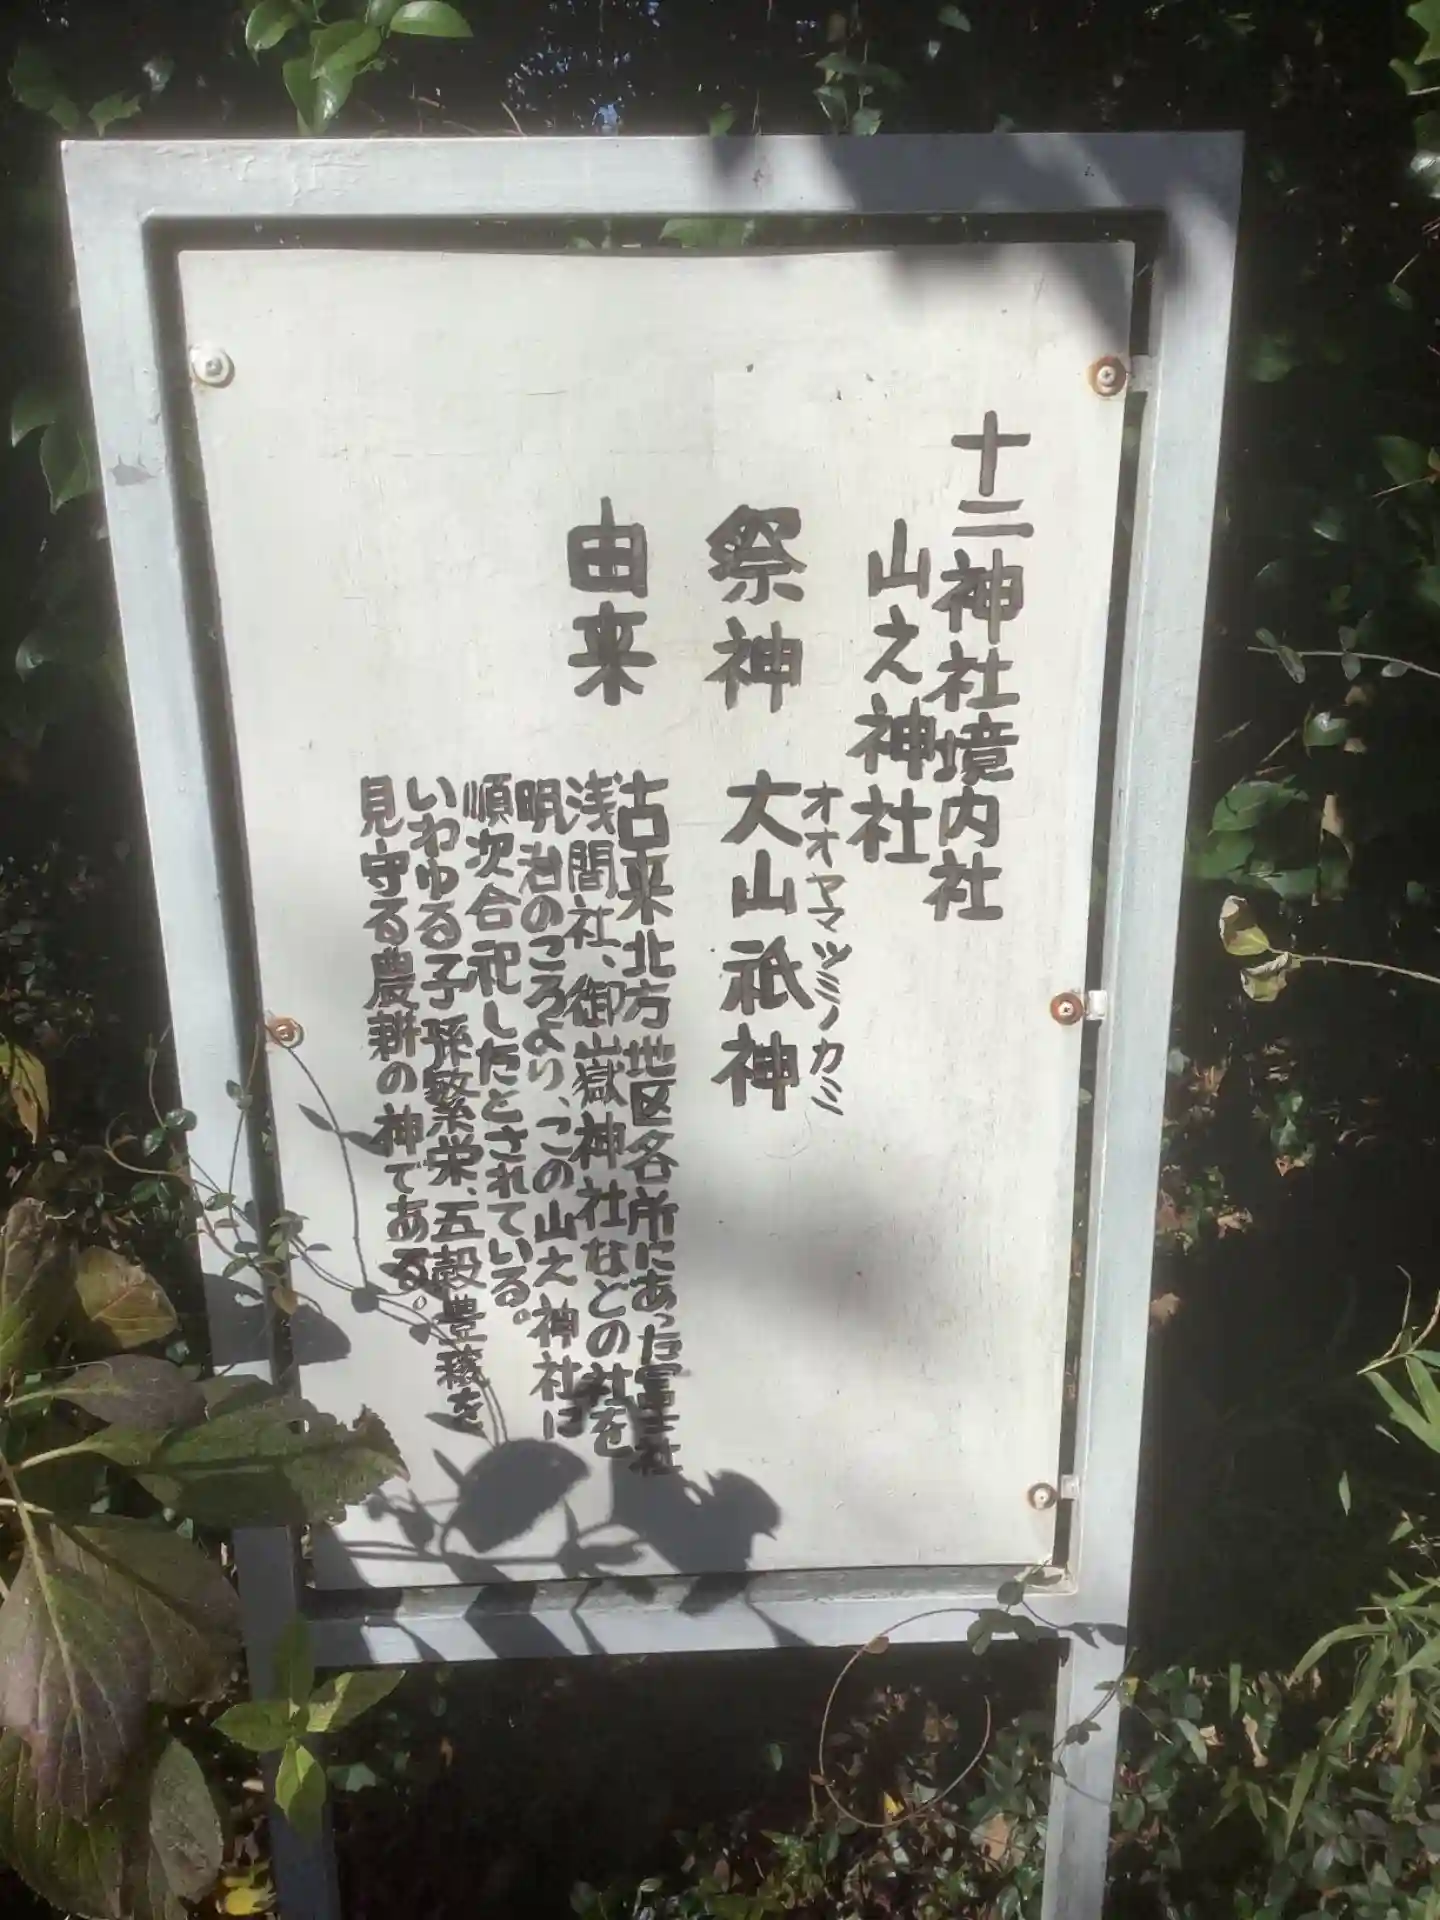 十二神社境内社
山之神社
祭神 大山祇神
オオヤマツミノカミ
由来
古来北方地区各所にあった冨士社
浅間社、御嶽神社などの社を
明治のころより、この山之神社に
順次合祀したとされている。
いわゆる子孫繁栄、五穀豊穣を
見守る農耕の神である。